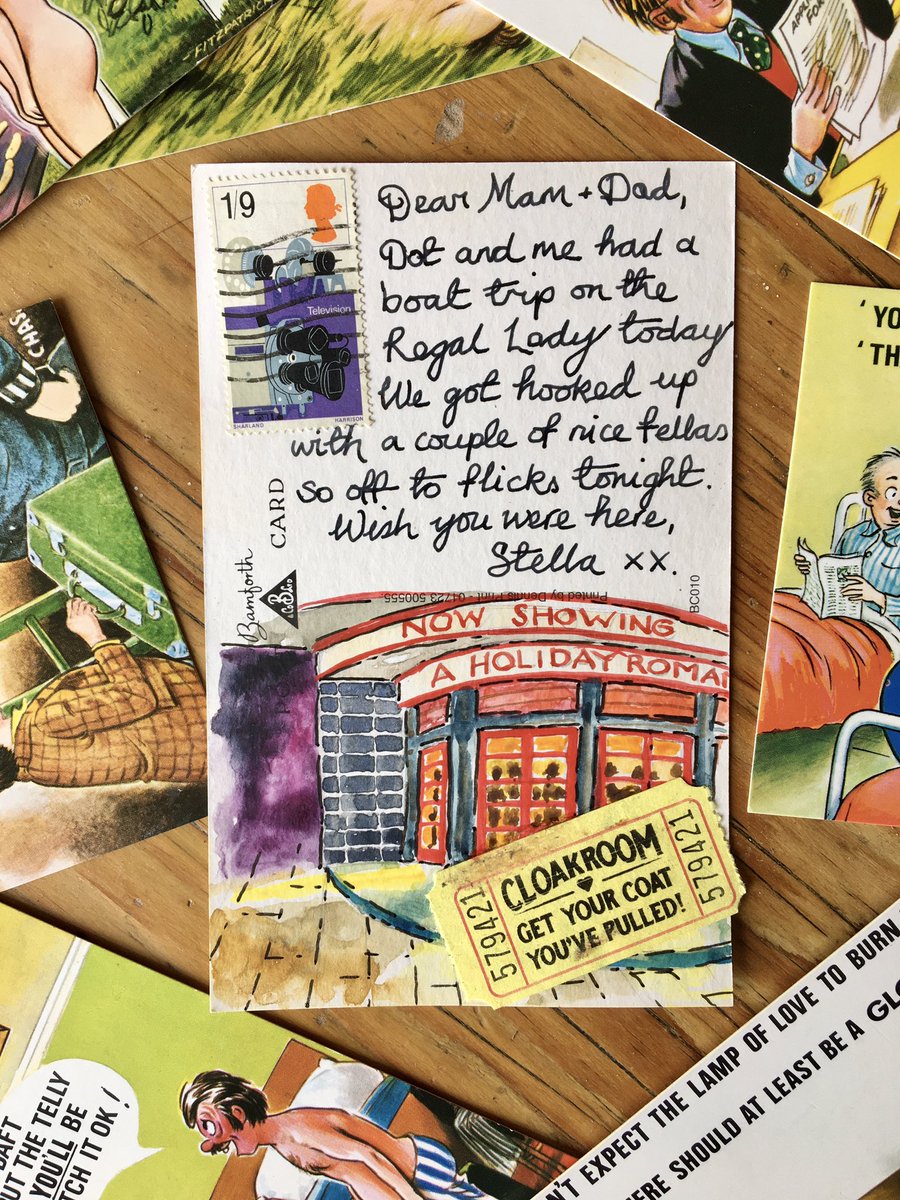 FITZPATRICK
APPLI
FOR
1/9
Television
SHARLAND HARRISON
Dear Mam + Dad,
Dot and me had a
boat trip on the
Regal Lady today
We got hooked up
with a couple of nice fellas
so off to flicks tonight.
Wish you were here,
Stella xx.
Bamforth
& Co Ltd
CARD
Printed by Dennis Print 01723 500555
BC010
NOW SHOWING
A HOLIDAY ROMA
CLOAKROOM
GET YOUR COAT
YOU'VE PULLED!
579421
579421
CHAS
'YO
'TH
DAFT
UT THE TELLY
YOU'LL BE
TCH IT OK!
N'T EXPECT THE LAMP OF LOVE TO BURN
HERE SHOULD AT LEAST BE A GLO